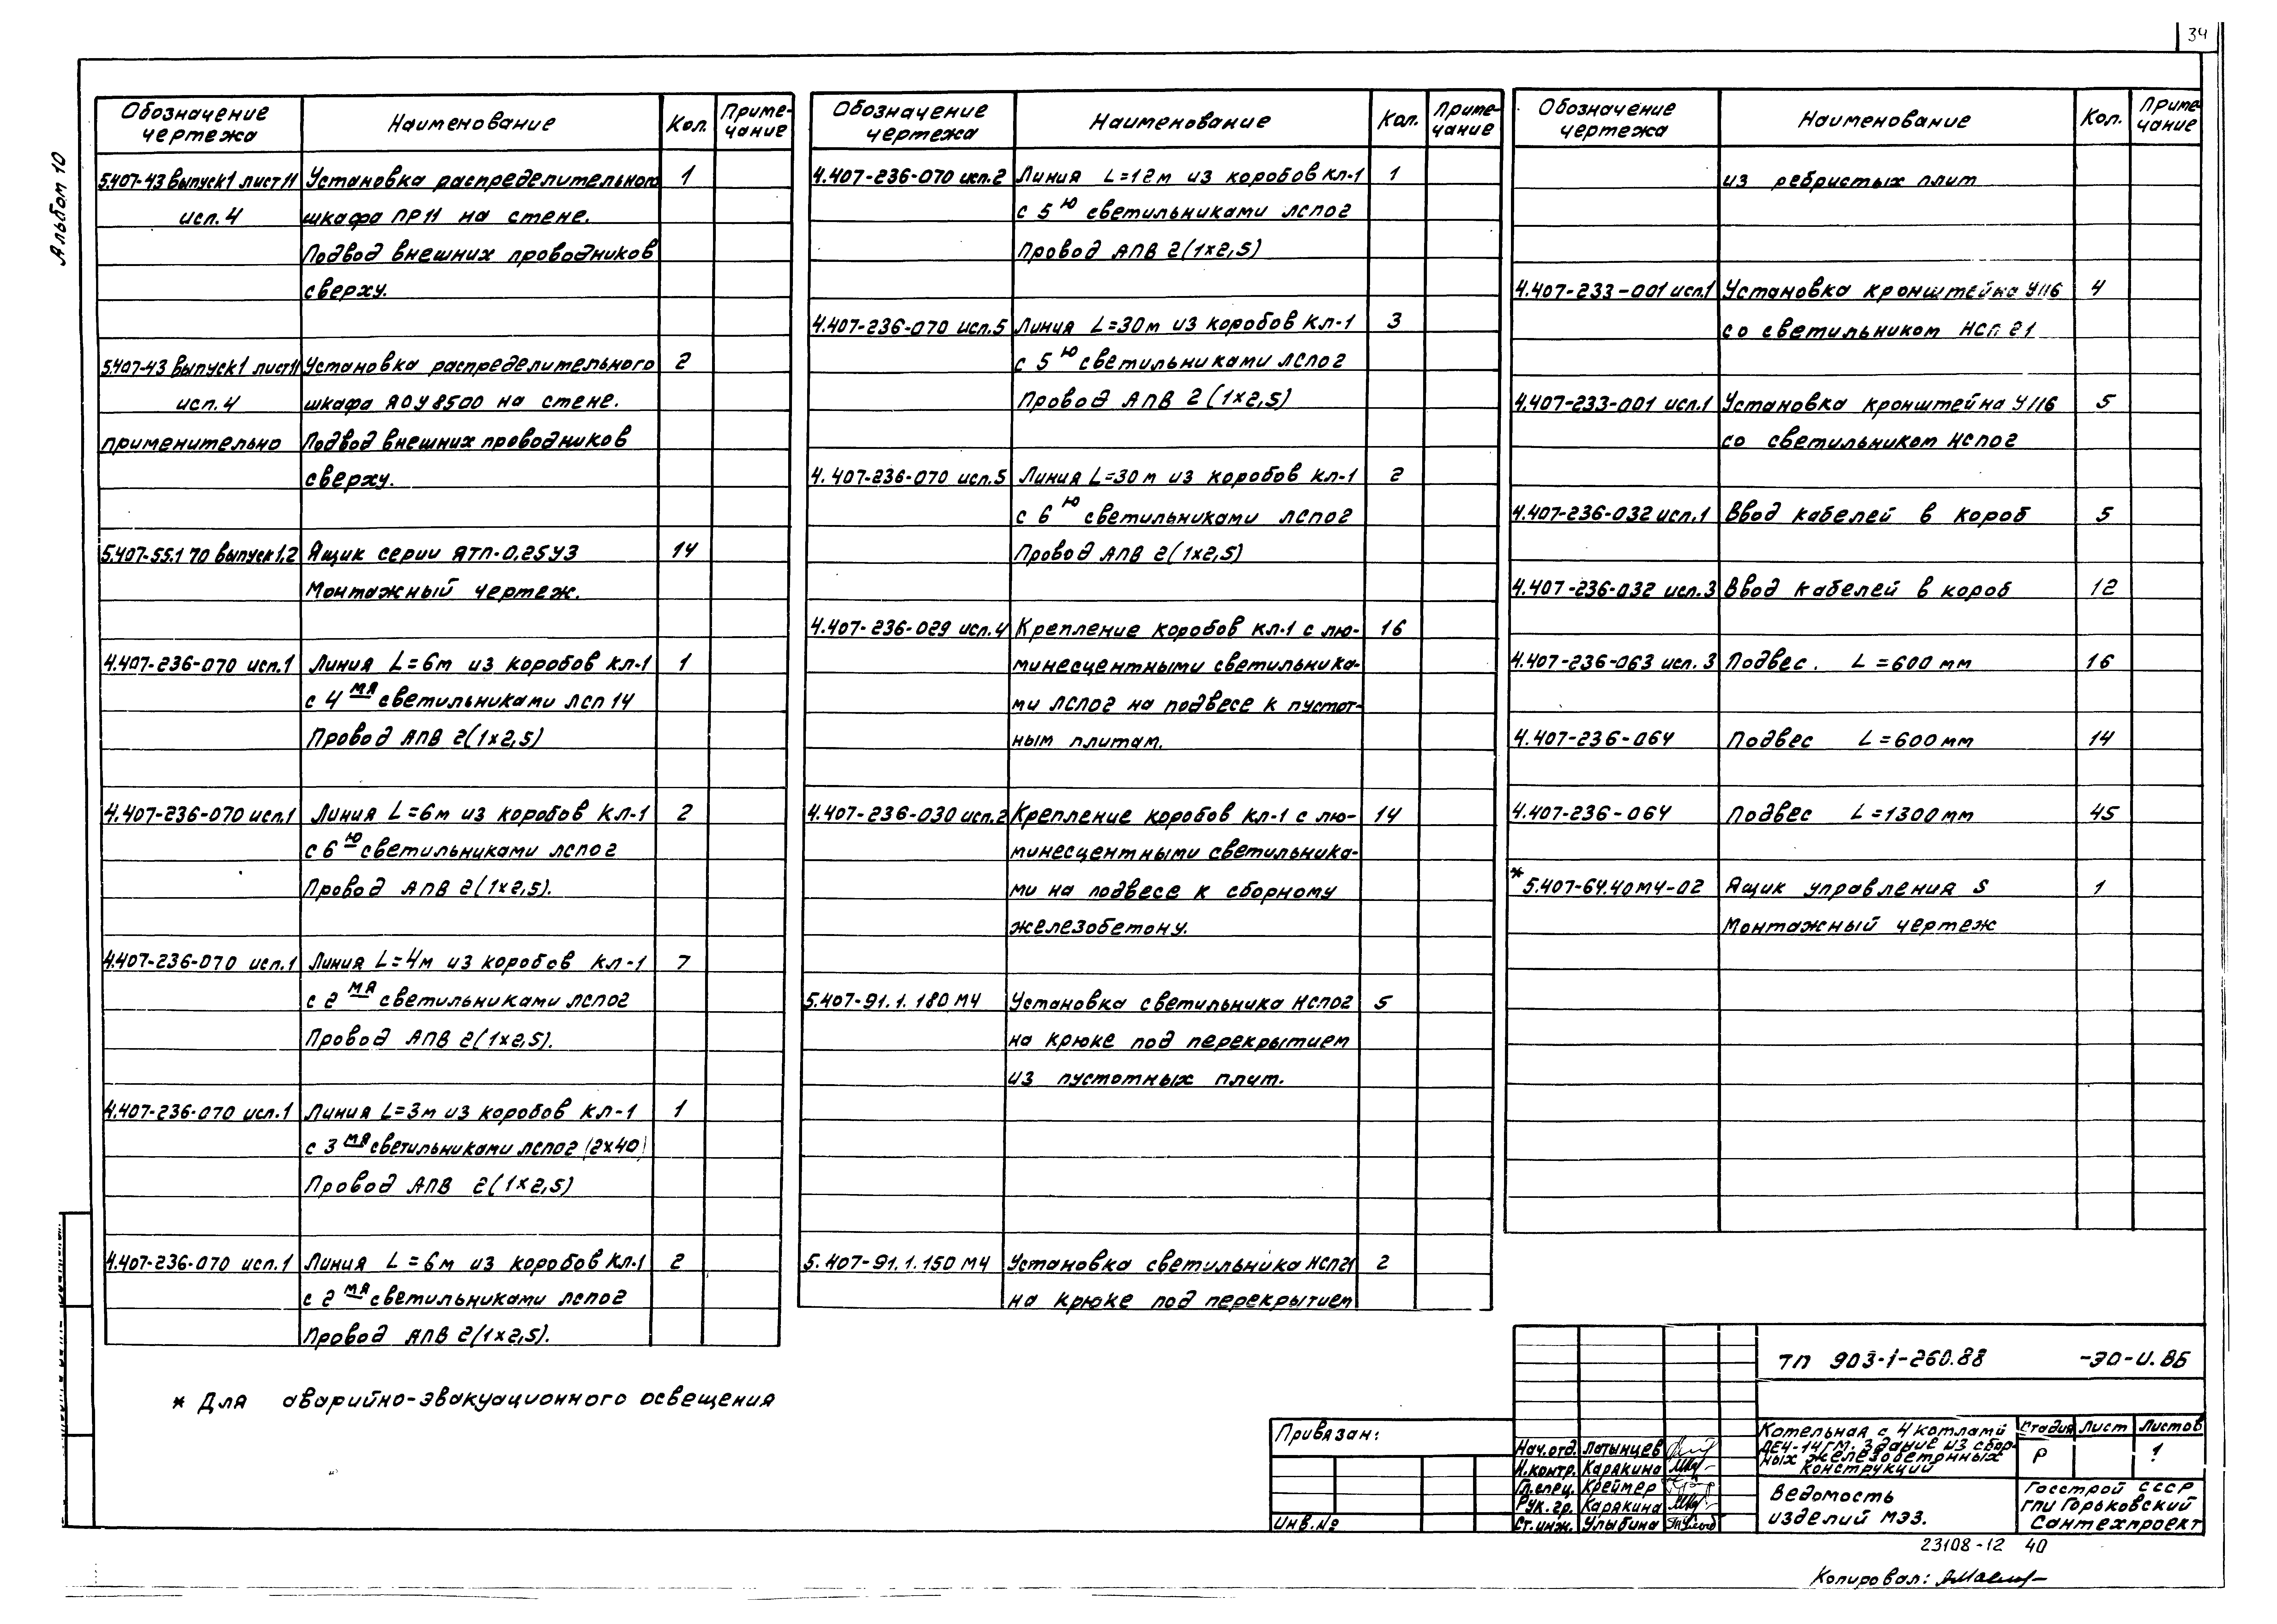 34
Альбом 10
Обозначение чертежа Наименование Кол. Примечание
5.407-43 выпуск1 лист11 Установка распределительного 1
исп. 4 шкафа ПР11 на стене.
Подвод внешних проводников
сверху.
5.407-43 выпуск1 лист11 Установка распределительного 2
исп. 4 шкафа ЯОУ8500 на стене.
применительно Подвод внешних проводников
сверху.
5.407-55.1 70 выпуск1,2 Ящик серии ЯТП-0,25У3 14
Монтажный чертеж.
4.407-236-070 исп.1 Линия L=6м из коробов кл-1 1
с 4мя светильниками лсп 14
Провод АПВ 2(1×2,5)
4.407-236-070 исп.1 Линия L=6м из коробов кл-1 2
с 6ю светильниками лсп02
Провод АПВ 2(1×2,5).
4.407-236-070 исп.1 Линия L=4м из коробов кл-1 7
с 2мя светильниками лсп02
Провод АПВ 2(1×2,5).
4.407-236-070 исп.1 Линия L=3м из коробов кл-1 1
с 3мя светильниками лсп02 (2×40)
Провод АПВ 2(1×2,5)
4.407-236-070 исп.1 Линия L=6м из коробов Кл-1 2
с 2мя светильниками лсп02
Провод АПВ 2(1×2,5).
* Для аварийно-эвакуационного освещения
Обозначение чертежа Наименование Кол. Примечание
4.407-236-070 исп.2 Линия L=12м из коробов кл-1 1
с 5ю светильниками лсп02
Провод АПВ 2(1×2,5)
4.407-236-070 исп.5 Линия L=30м из коробов Кл-1 3
с 5ю светильниками лсп02
Провод АПВ 2(1×2,5)
4.407-236-070 исп.5 Линия L=30м из коробов кл-1 2
с 6ю светильниками лсп02
Провод АПВ 2(1×2,5)
4.407-236-029 исп.4 Крепление коробов кл-1 с лю- 16
минесцентными светильника-
ми лсп02 на подвесе к пустот-
ным плитам.
4.407-236-030 исп.2 Крепление коробов кл-1 с лю- 14
минесцентными светильника-
ми на подвесе к сборному
железобетону.
5.407-91.1.180 МЧ Установка светильника НСП02 5
на крюке под перекрытием
из пустотных плит.
5.407-91.1.150 МЧ Установка светильника НСП21 2
на крюке под перекрытием
Обозначение чертежа Наименование Кол. Примечание
из ребристых плит
4.407-233-001 исп.1 Установка кронштейна У116 4
со светильником НСП 21
4.407-233-001 исп.1 Установка кронштейна У116 5
со светильником НСП02
4.407-236-032 исп.1 Ввод кабелей в короб 5
4.407-236-032 исп.3 Ввод кабелей в короб 12
4.407-236-063 исп.3 Подвес. L=600 мм 16
4.407-236-064 Подвес L=600 мм 14
4.407-236-064 Подвес L=1300 мм 45
* 5.407-64.40МЧ-02 Ящик управления S 1
Монтажный чертеж
ТП 903-1-260.88 -ЭО-И.ВБ
Привязан:
Инв.№
Нач.отд. Латынцев
Н.контр. Карякина
Гл.спец. Креймер
Рук.гр. Карякина
Ст.инж. Улыбина
Котельная с 4 котлами
ДЕ4-14ГМ. Здание из сбор-
ных железобетонных
конструкций
Стадия Лист Листов
Р 1
Ведомость
изделий МЭЗ.
Госстрой СССР
ГПИ Горьковский
Сантехпроект
23108-12 40
Копировал: